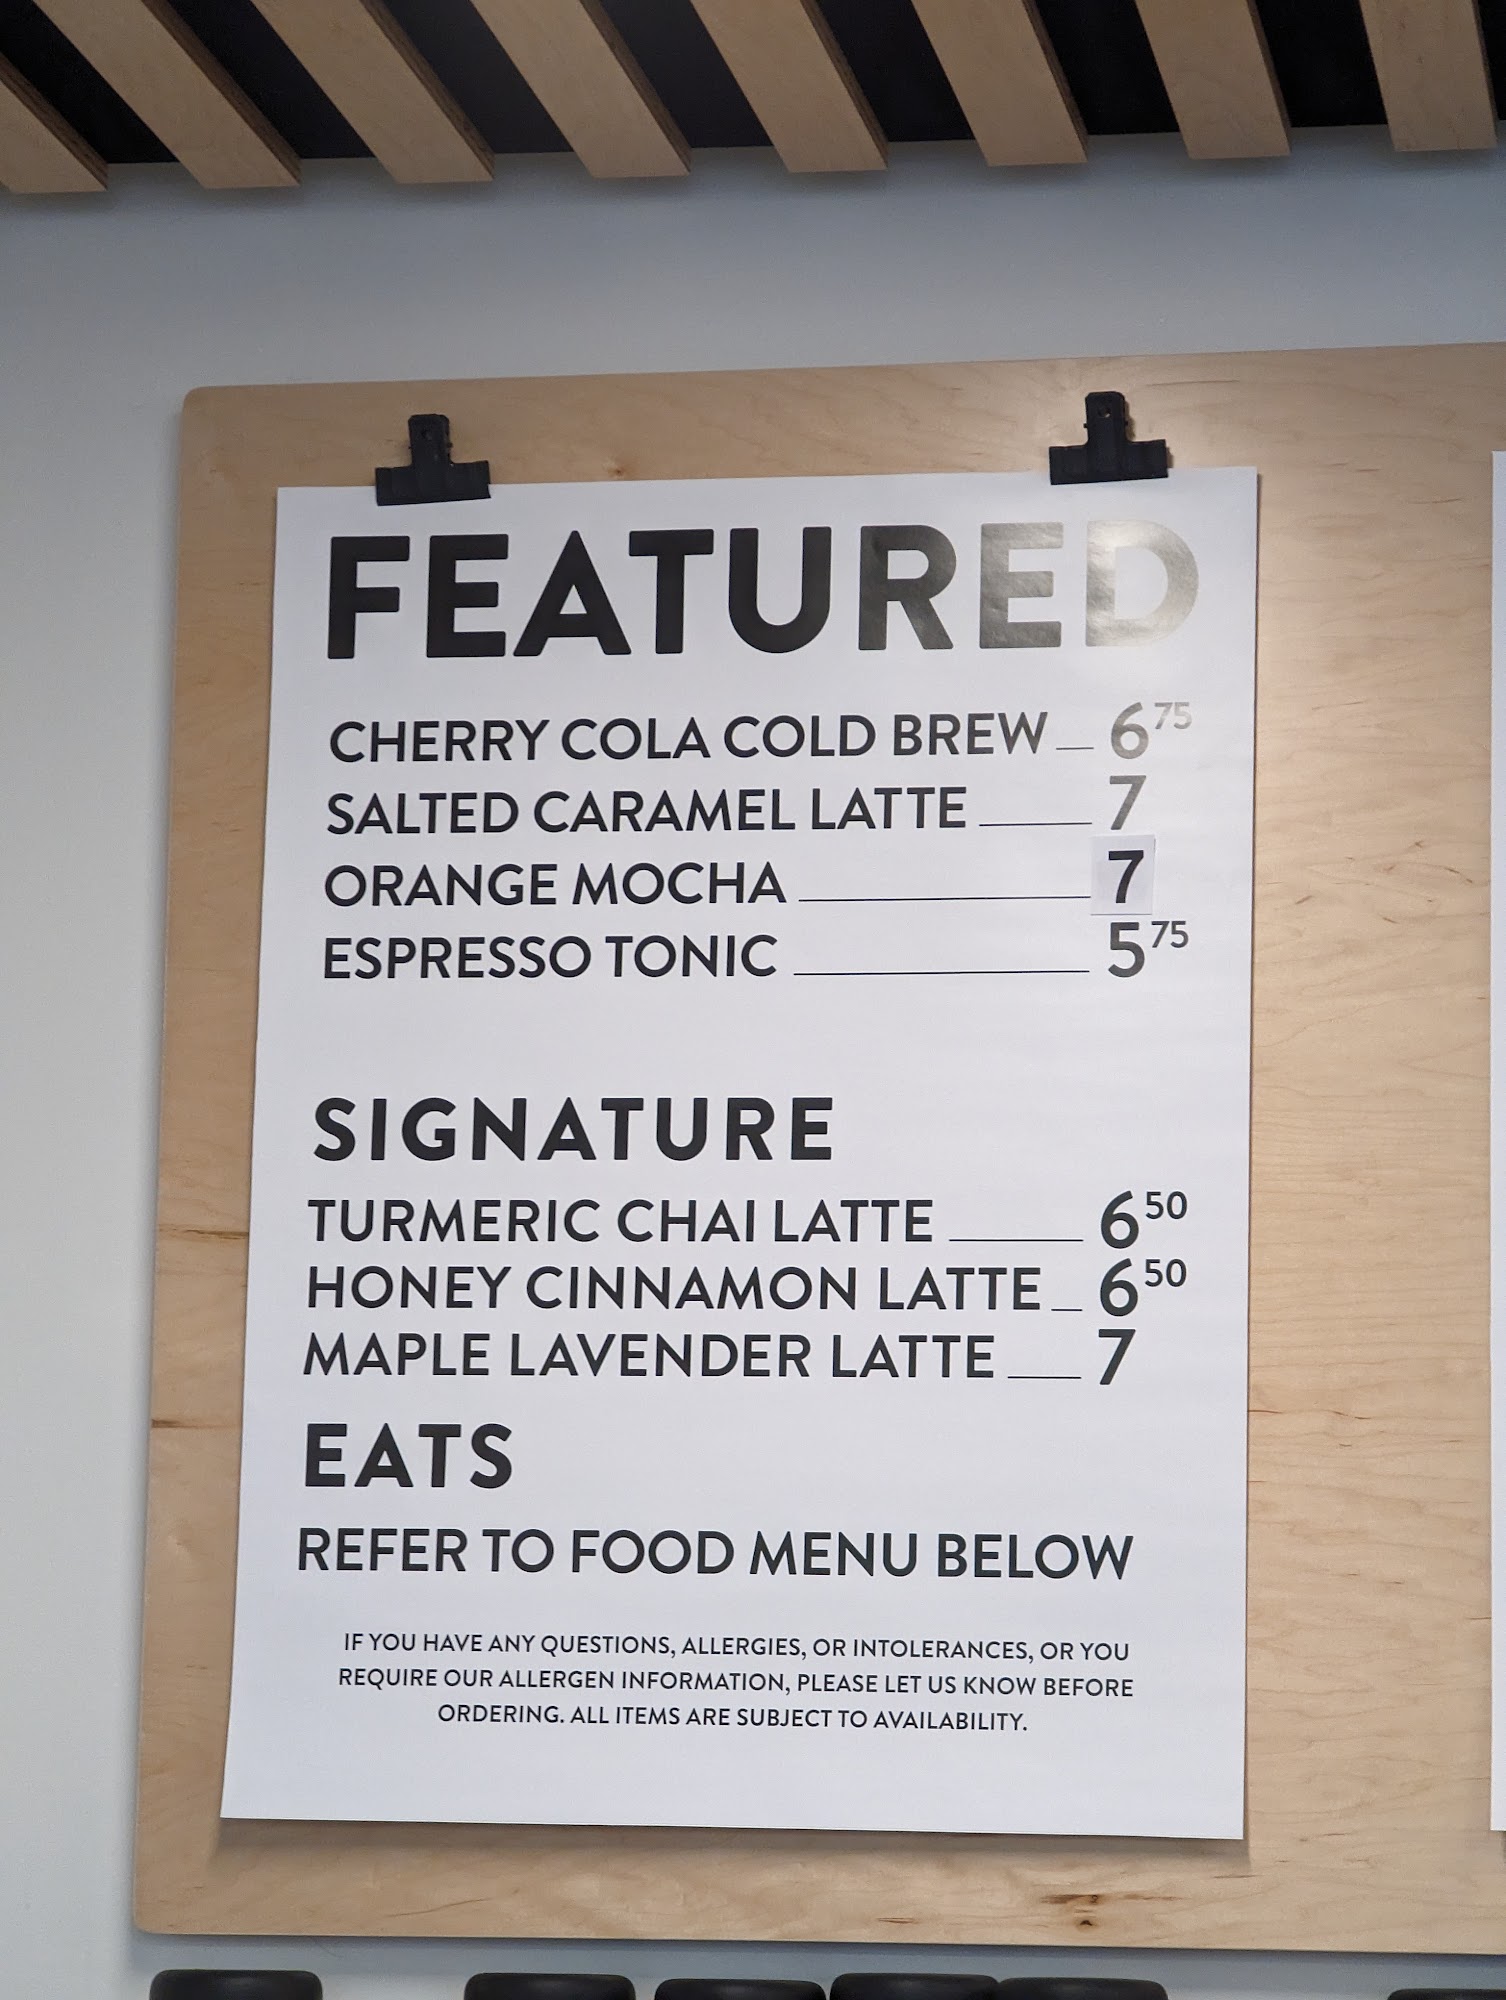 FEATURED
CHERRY COLA COLD BREW 6 75
SALTED CARAMEL LATTE 7
ORANGE MOCHA 7
ESPRESSO TONIC 5 75
SIGNATURE
TURMERIC CHAI LATTE 6 50
HONEY CINNAMON LATTE 6 50
MAPLE LAVENDER LATTE 7
EATS
REFER TO FOOD MENU BELOW
IF YOU HAVE ANY QUESTIONS, ALLERGIES, OR INTOLERANCES, OR YOU
REQUIRE OUR ALLERGEN INFORMATION, PLEASE LET US KNOW BEFORE
ORDERING. ALL ITEMS ARE SUBJECT TO AVAILABILITY.